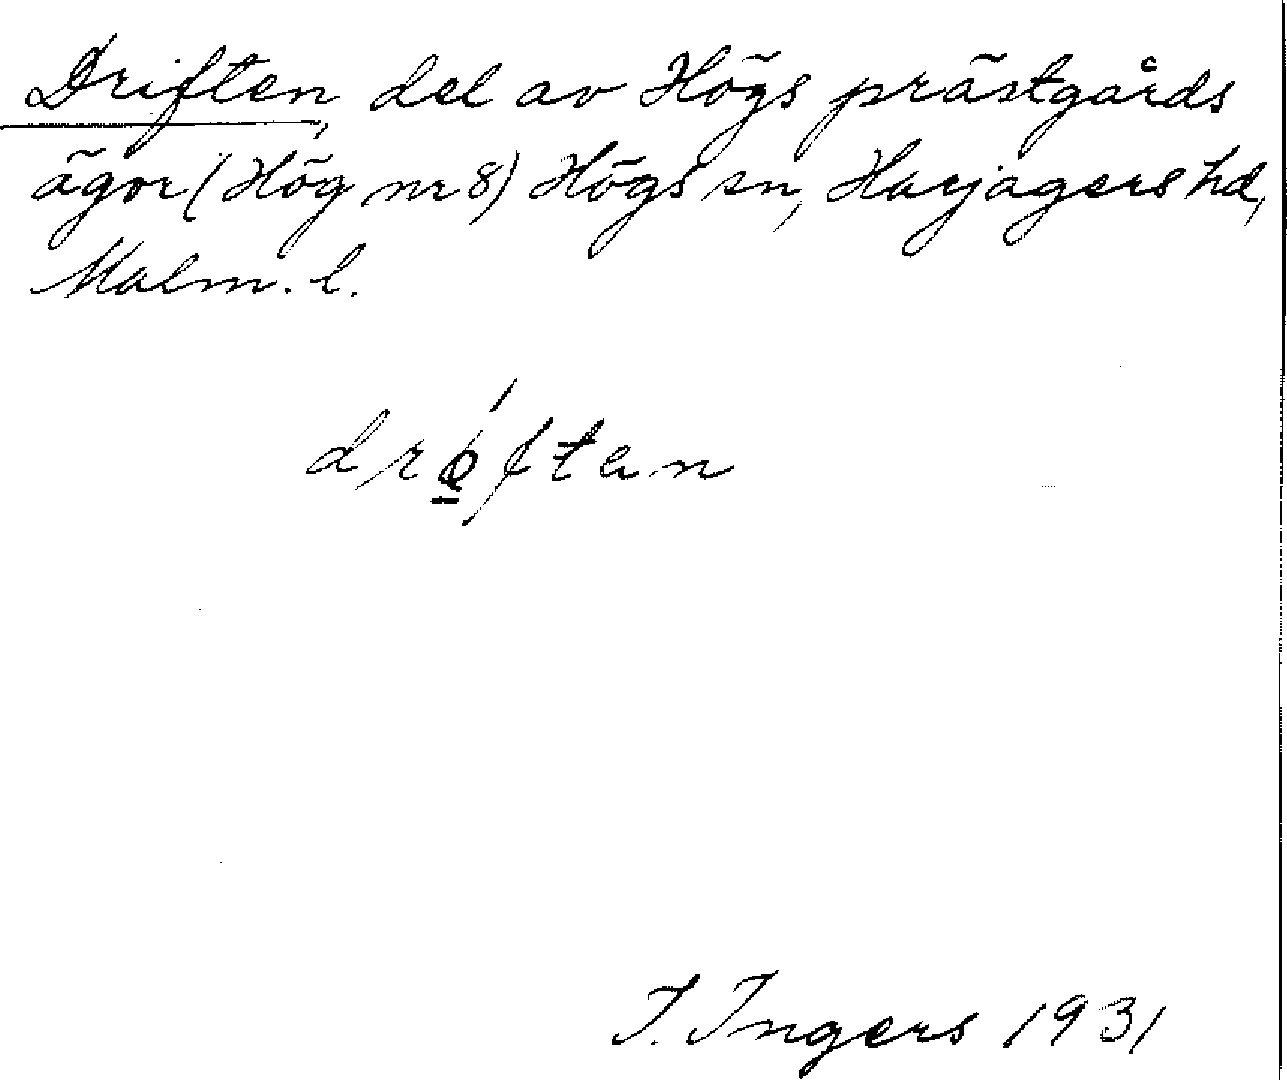 Driften, del av Högs prästgårds
ägor (Hög nr 8) Högs sn, Harjagers hd,
Malm. l.
drǿ̱ftan
I. Ingers 1931